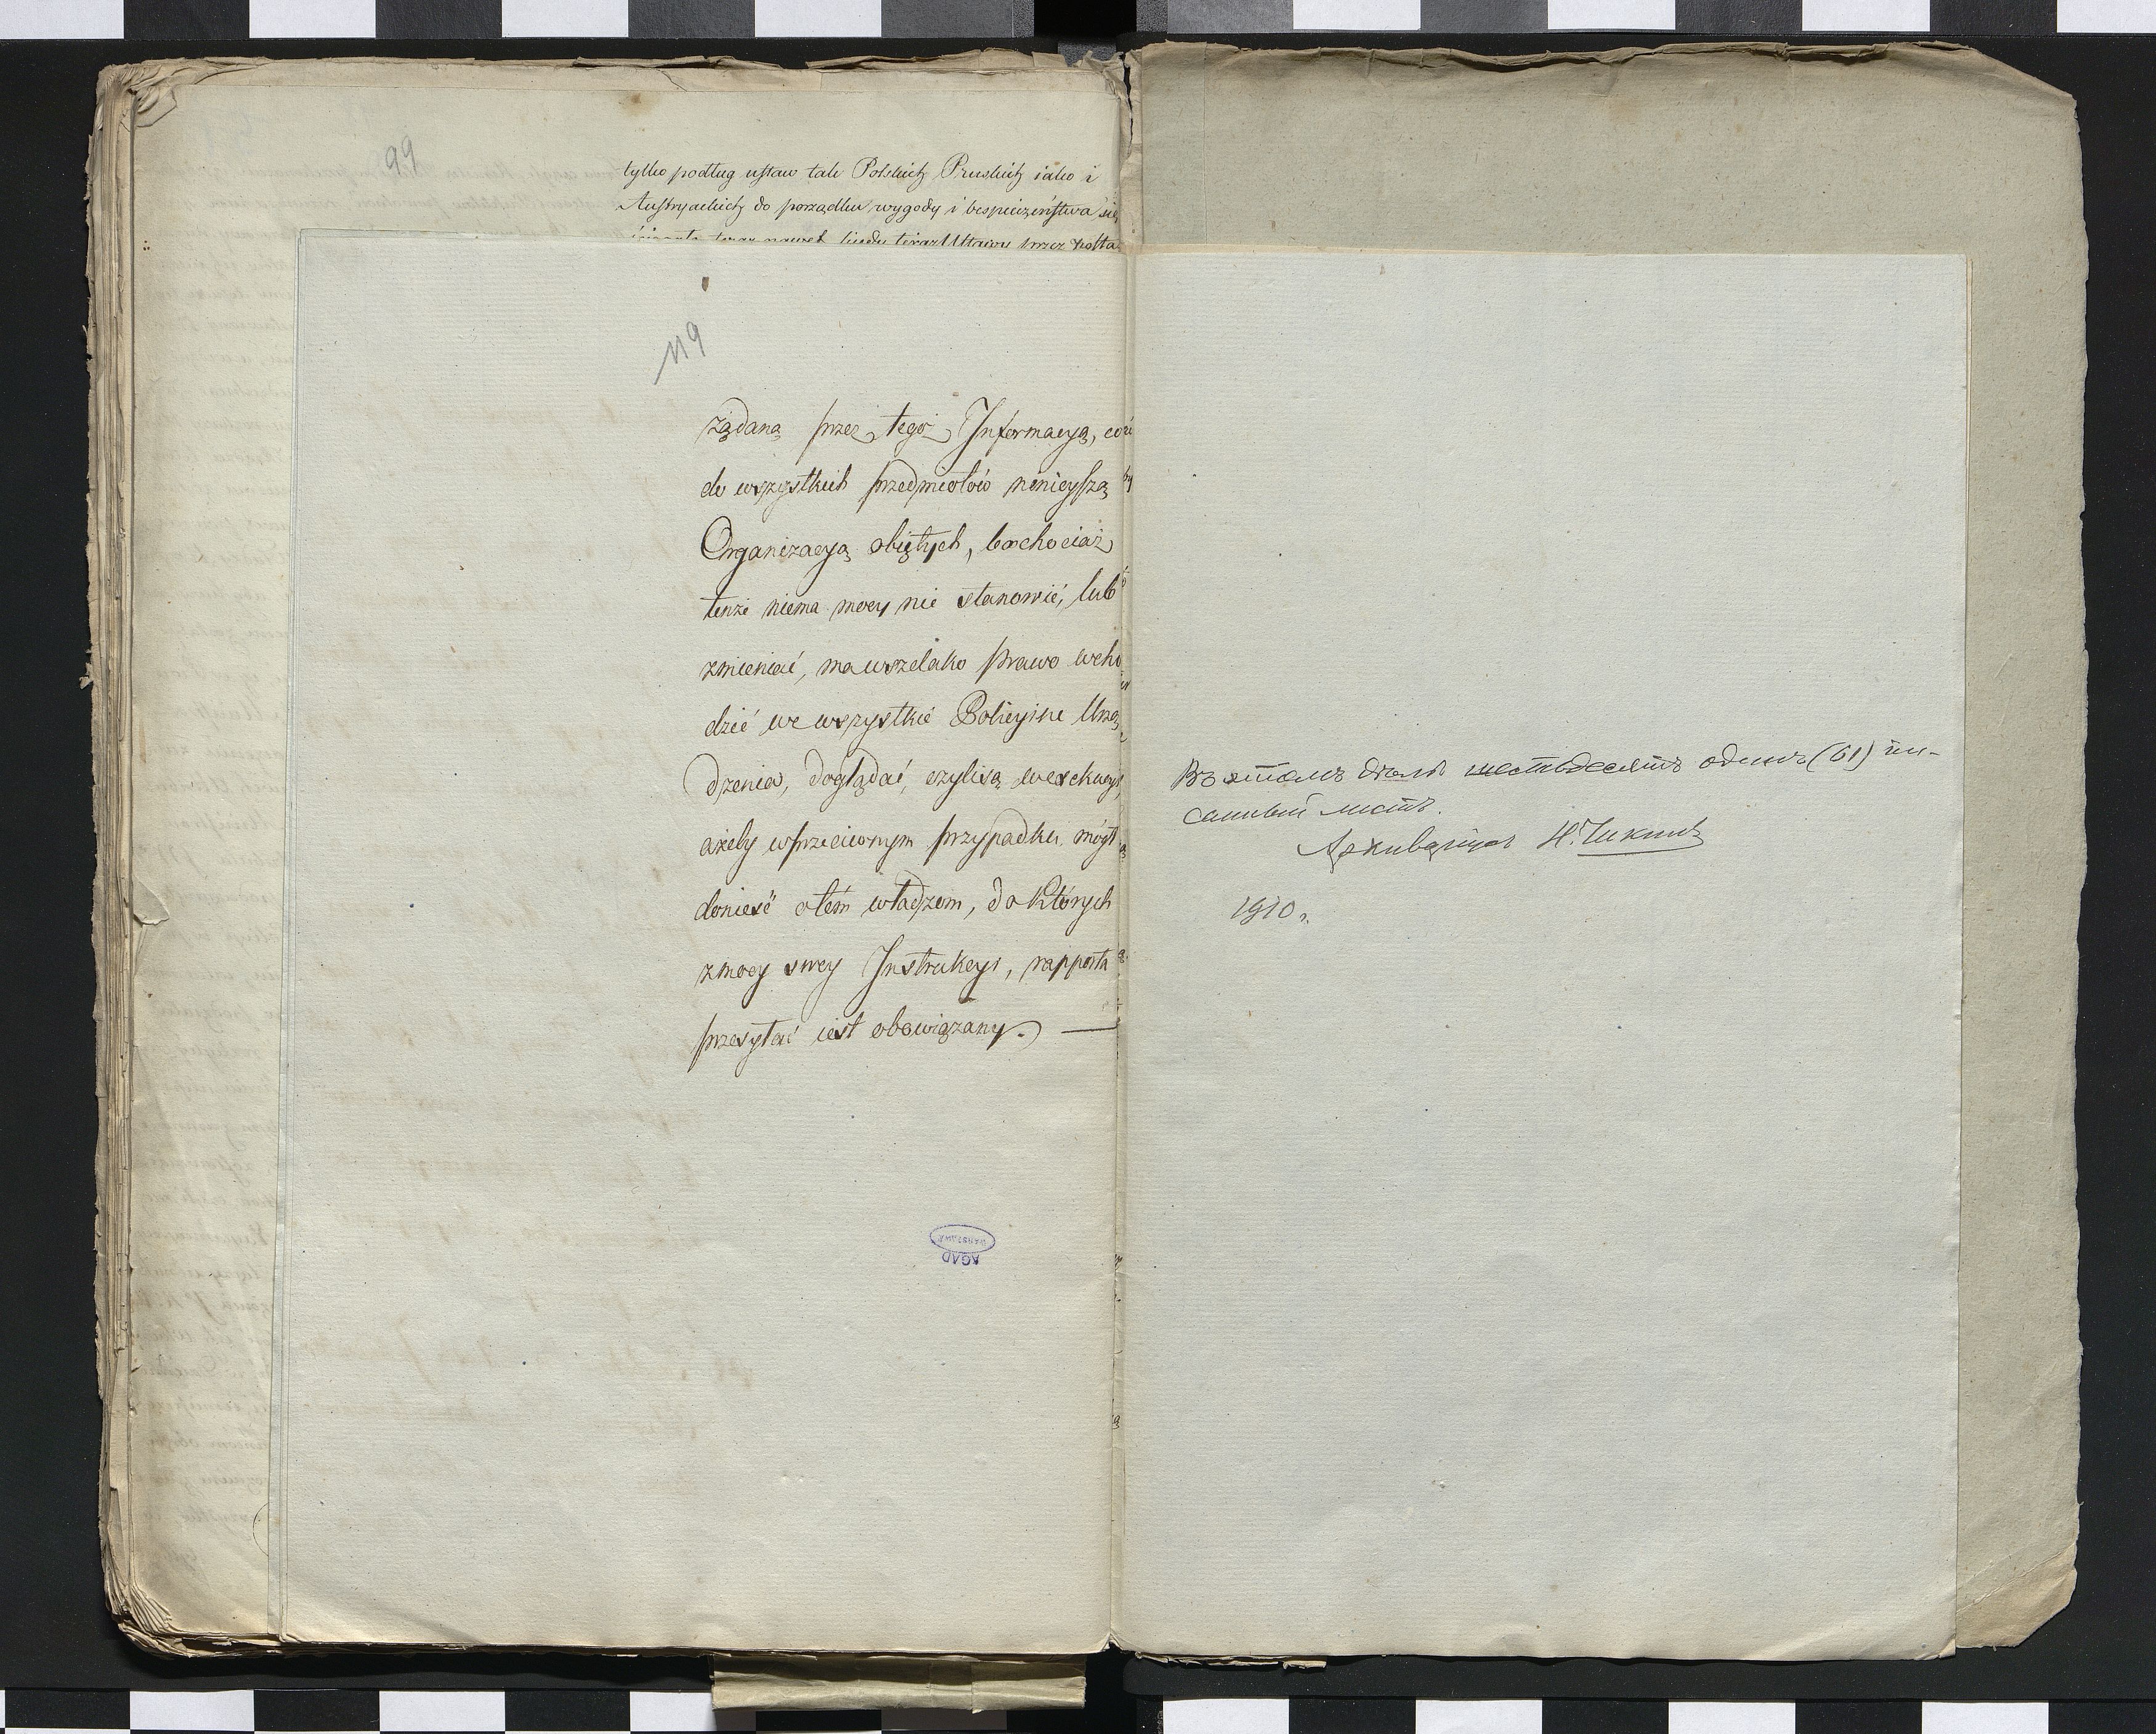 99
tylko podług ustaw tak Polskich Pruskich iako i
Austryackich do porządku wygody i bespieczeństwa się
119
żądaną przez tegoż Informacyą, coż
do wszystkich przedmiotów ninieyszą
Organizacyą obiętych, bo chociaż
tenże niema mocy nic stanowić, lub
zmieniać, ma wszelako prawo wcho
dzić we wszystkie Policyine Urzą
dzenia, doglądać, czyli są w exekucyi,
ażeby w przeciwnym przypadku mógł
donieść o tém władzom, do których
z mocy swey Instrukcyi, rapporta
przesyłać iest obowiązany. —
WARSZAWA
AGAD
Въ этомъ дѣлѣ шестьдесятъ одинъ (61) пи-
санный листъ.
Архиваріусъ
1910 г.